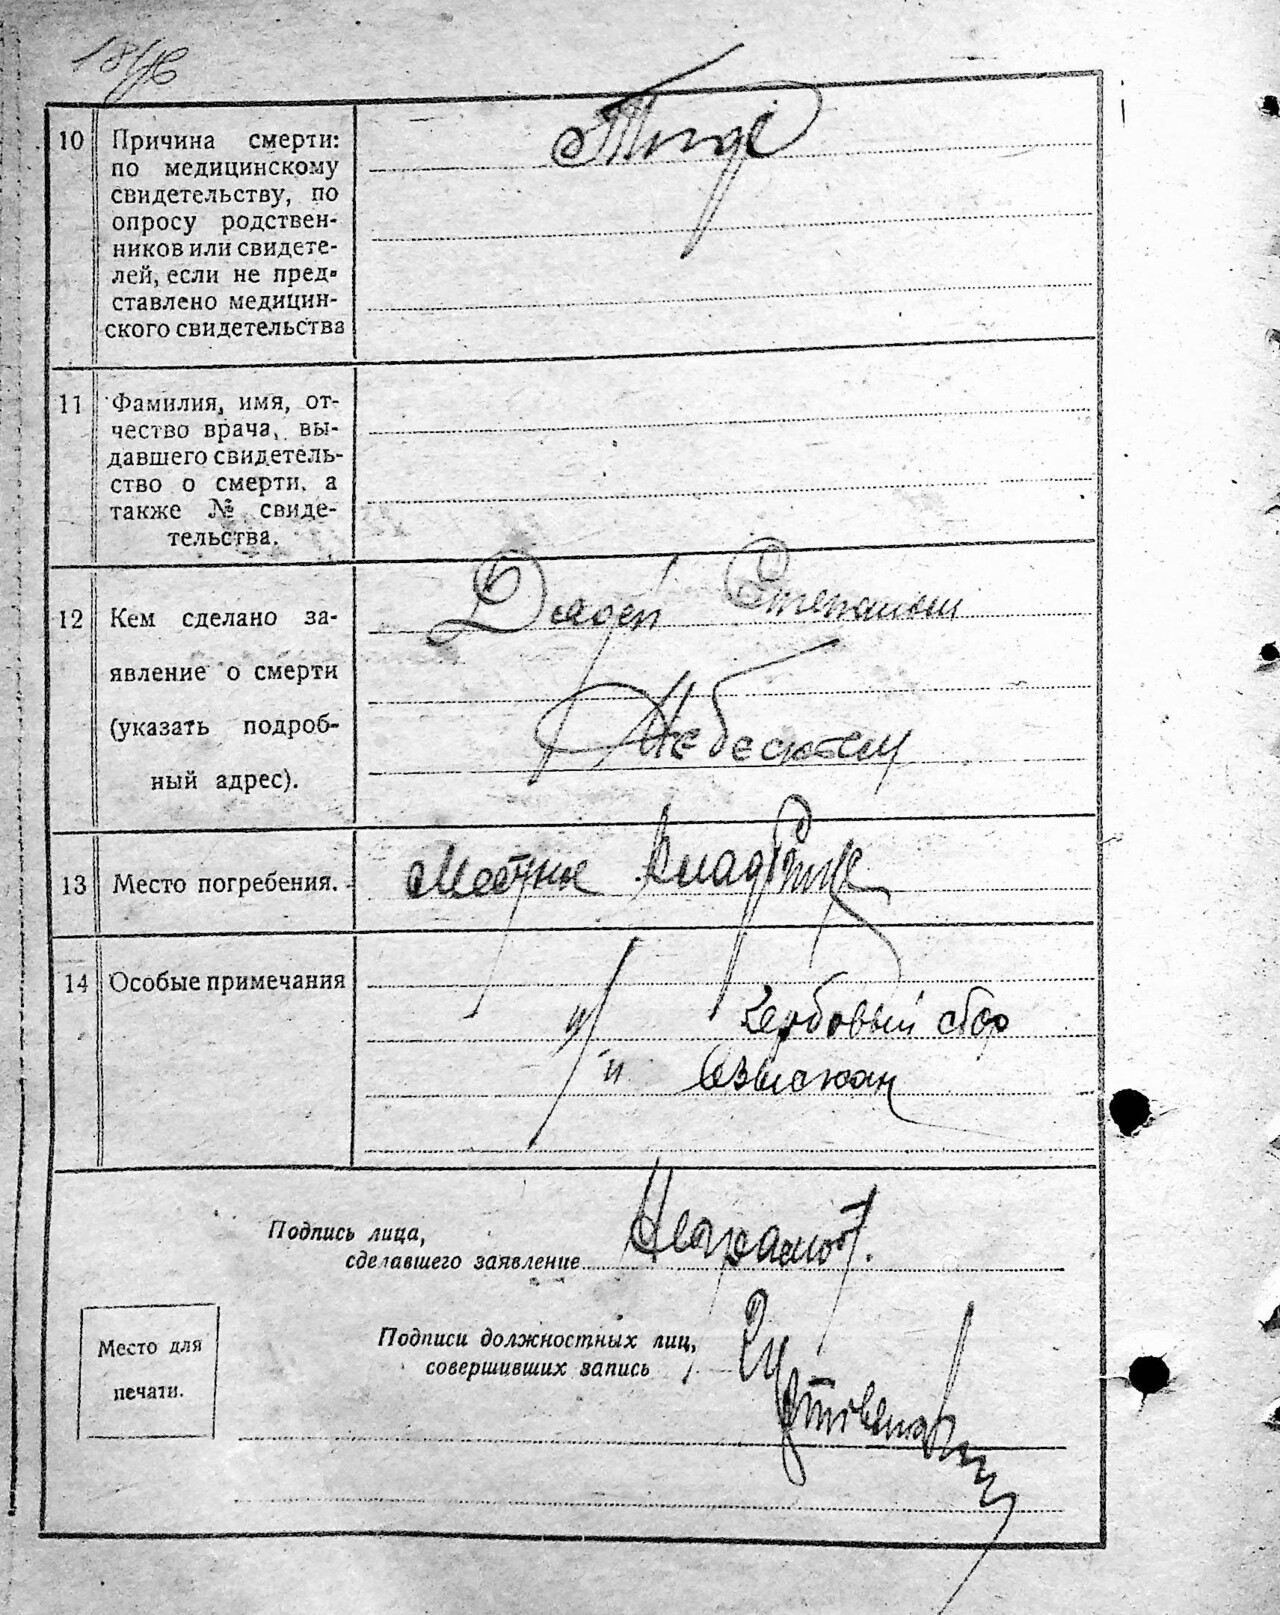 10 Причина смерти:
по медицинскому
свидетельству, по
опросу родствен-
ников или свидете-
лей, если не пред-
ставлено медицин-
ского свидетельства
11 Фамилия, имя, от-
чество врача, вы-
давшего свидетель-
ство о смерти, а
также № свиде-
тельства.
12 Кем сделано за-
явление о смерти
(указать подроб-
ный адрес).
Дядей
13 Место погребения.
14 Особые примечания
Гербовый сбор
взыскан
Подпись лица,
сделавшего заявление Неграмот.
Подписи должностных лиц,
совершивших запись
Место для
печати.